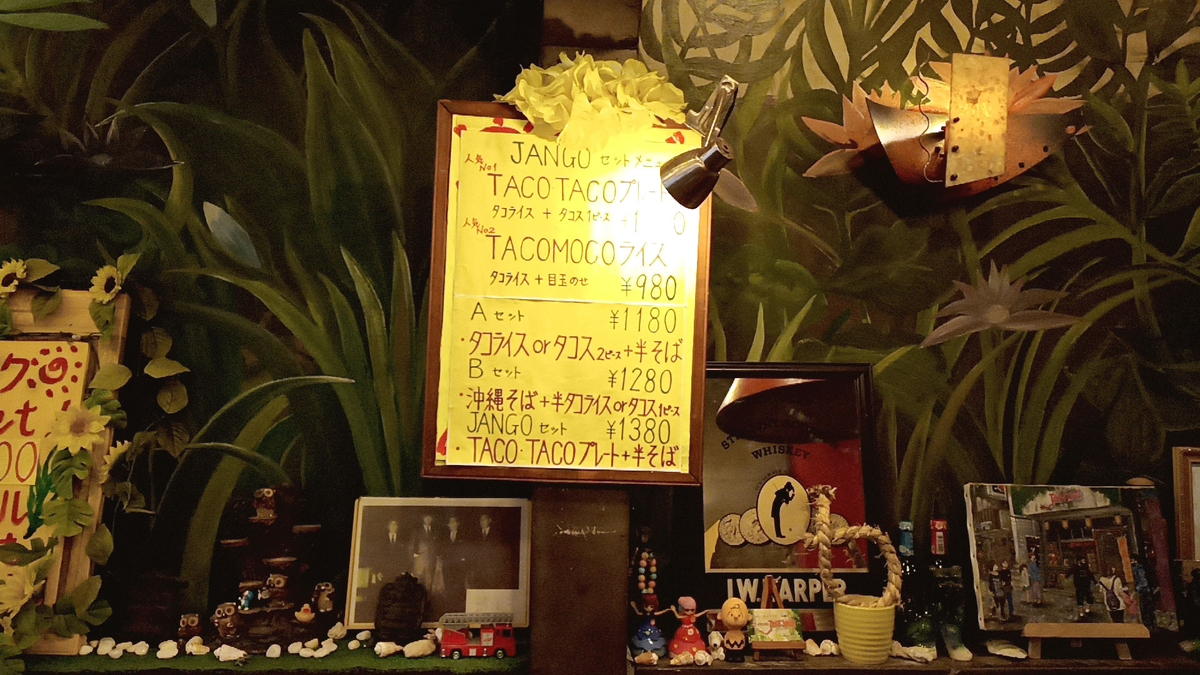 JANGO セットメニュ
人気No1
TACO・TACOプレート
タコライス + タコス1ピース
人気No2
TACOMOCOライス
タコライス+目玉のせ ¥980
Aセット ¥1180
・タコライスorタコス2ピース+半そば
Bセット ¥1280
・沖縄そば+半タコライスorタコス1ピース
JANGOセット ¥1380
・TACO・TACOプレート+半そば
WHISKEY
I.W.HARPER